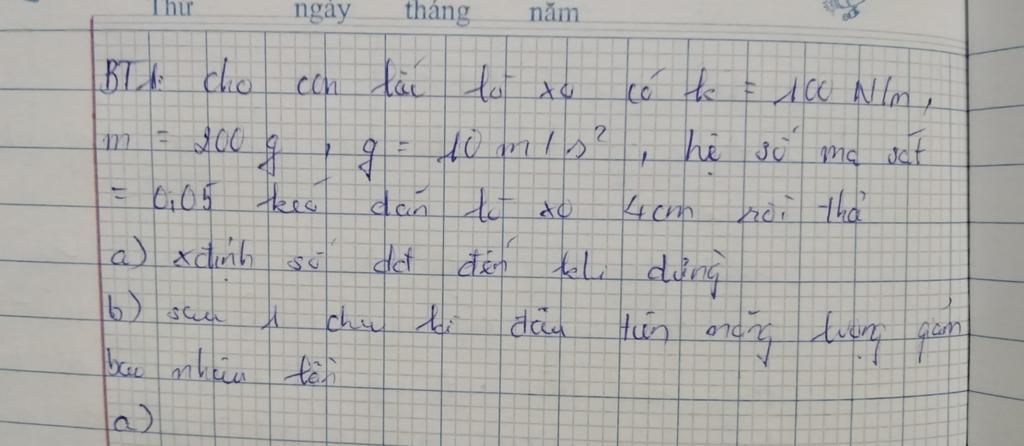 Thứ ngày tháng năm
BT1: cho con lắc lò xo có k = 100 N/m,
m = 200 g , g = 10 m/s², hệ số ma sát
= 0,05 kéo dãn lò xo 4cm rồi thả
a) xđịnh số dđ đến khi dừng
b) sau 1 chu kì đầu tiên năng lượng giảm
bao nhiêu lần
a)